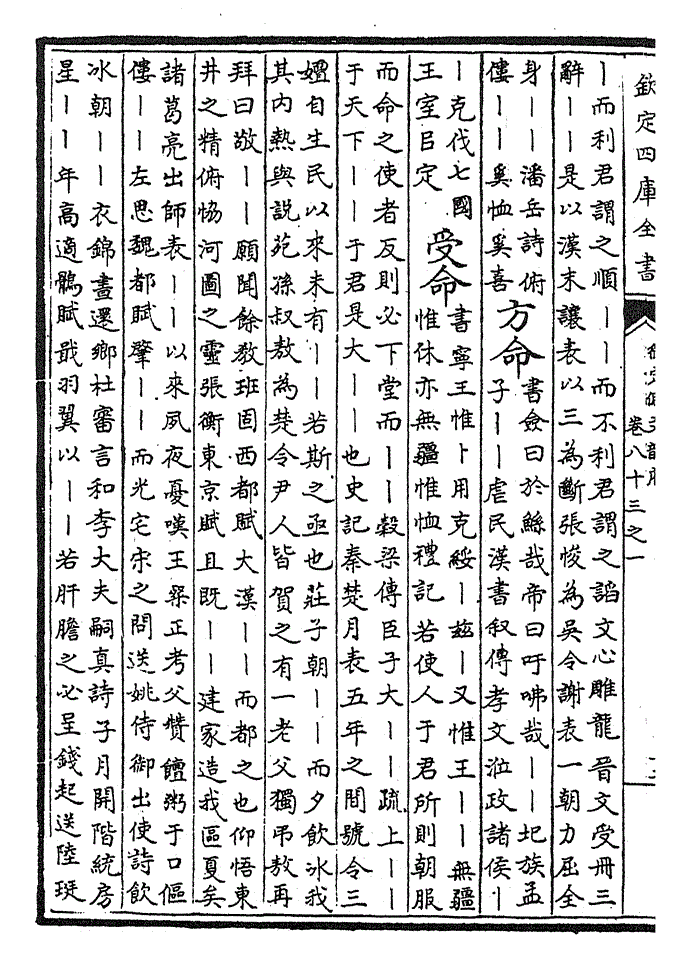 欽定四庫全書
卷八十三之一
丨而利君謂之順丨丨而不利君謂之謟文心雕龍晉文受冊三
辭丨丨是以漢末讓表以三為斷張悛為吳令謝表一朝力屈全
身丨丨潘岳詩俯
僂丨丨奚恤奚喜
方命
書僉曰於鯀哉帝曰吁咈哉丨丨圮族孟
子丨丨虐民漢書叙傳孝文涖政諸侯丨
丨克伐七國
王室㠯定
受命
書寧王惟卜用克綏丨兹丨又惟王丨丨無疆
惟休亦無疆惟恤禮記若使人于君所則朝服
而命之使者反則必下堂而丨丨穀梁傳臣子大丨丨疏上丨丨
于天下丨丨于君是大丨丨也史記秦楚月表五年之間號令三
嬗自生民以來未有丨丨若斯之亟也莊子朝丨丨而夕飲冰我
其内熱與說苑孫叔敖為楚令尹人皆賀之有一老父獨弔敖再
拜曰敬丨丨願聞餘教班固西都賦大漢丨丨而都之也仰悟東
井之精俯恊河圖之靈張衡東京賦且既丨丨建家造我區夏矣
諸葛亮出師表丨丨以來夙夜憂嘆王粲正考父贊饘粥于口傴
僂丨丨左思魏都賦肇丨丨而光宅宋之問送姚侍御出使詩飲
冰朝丨丨衣錦晝還鄉杜審言和李大夫嗣真詩子月開階統房
星丨丨年高適鶻賦戢羽翼以丨丨若肝膽之必呈錢起送陸珽